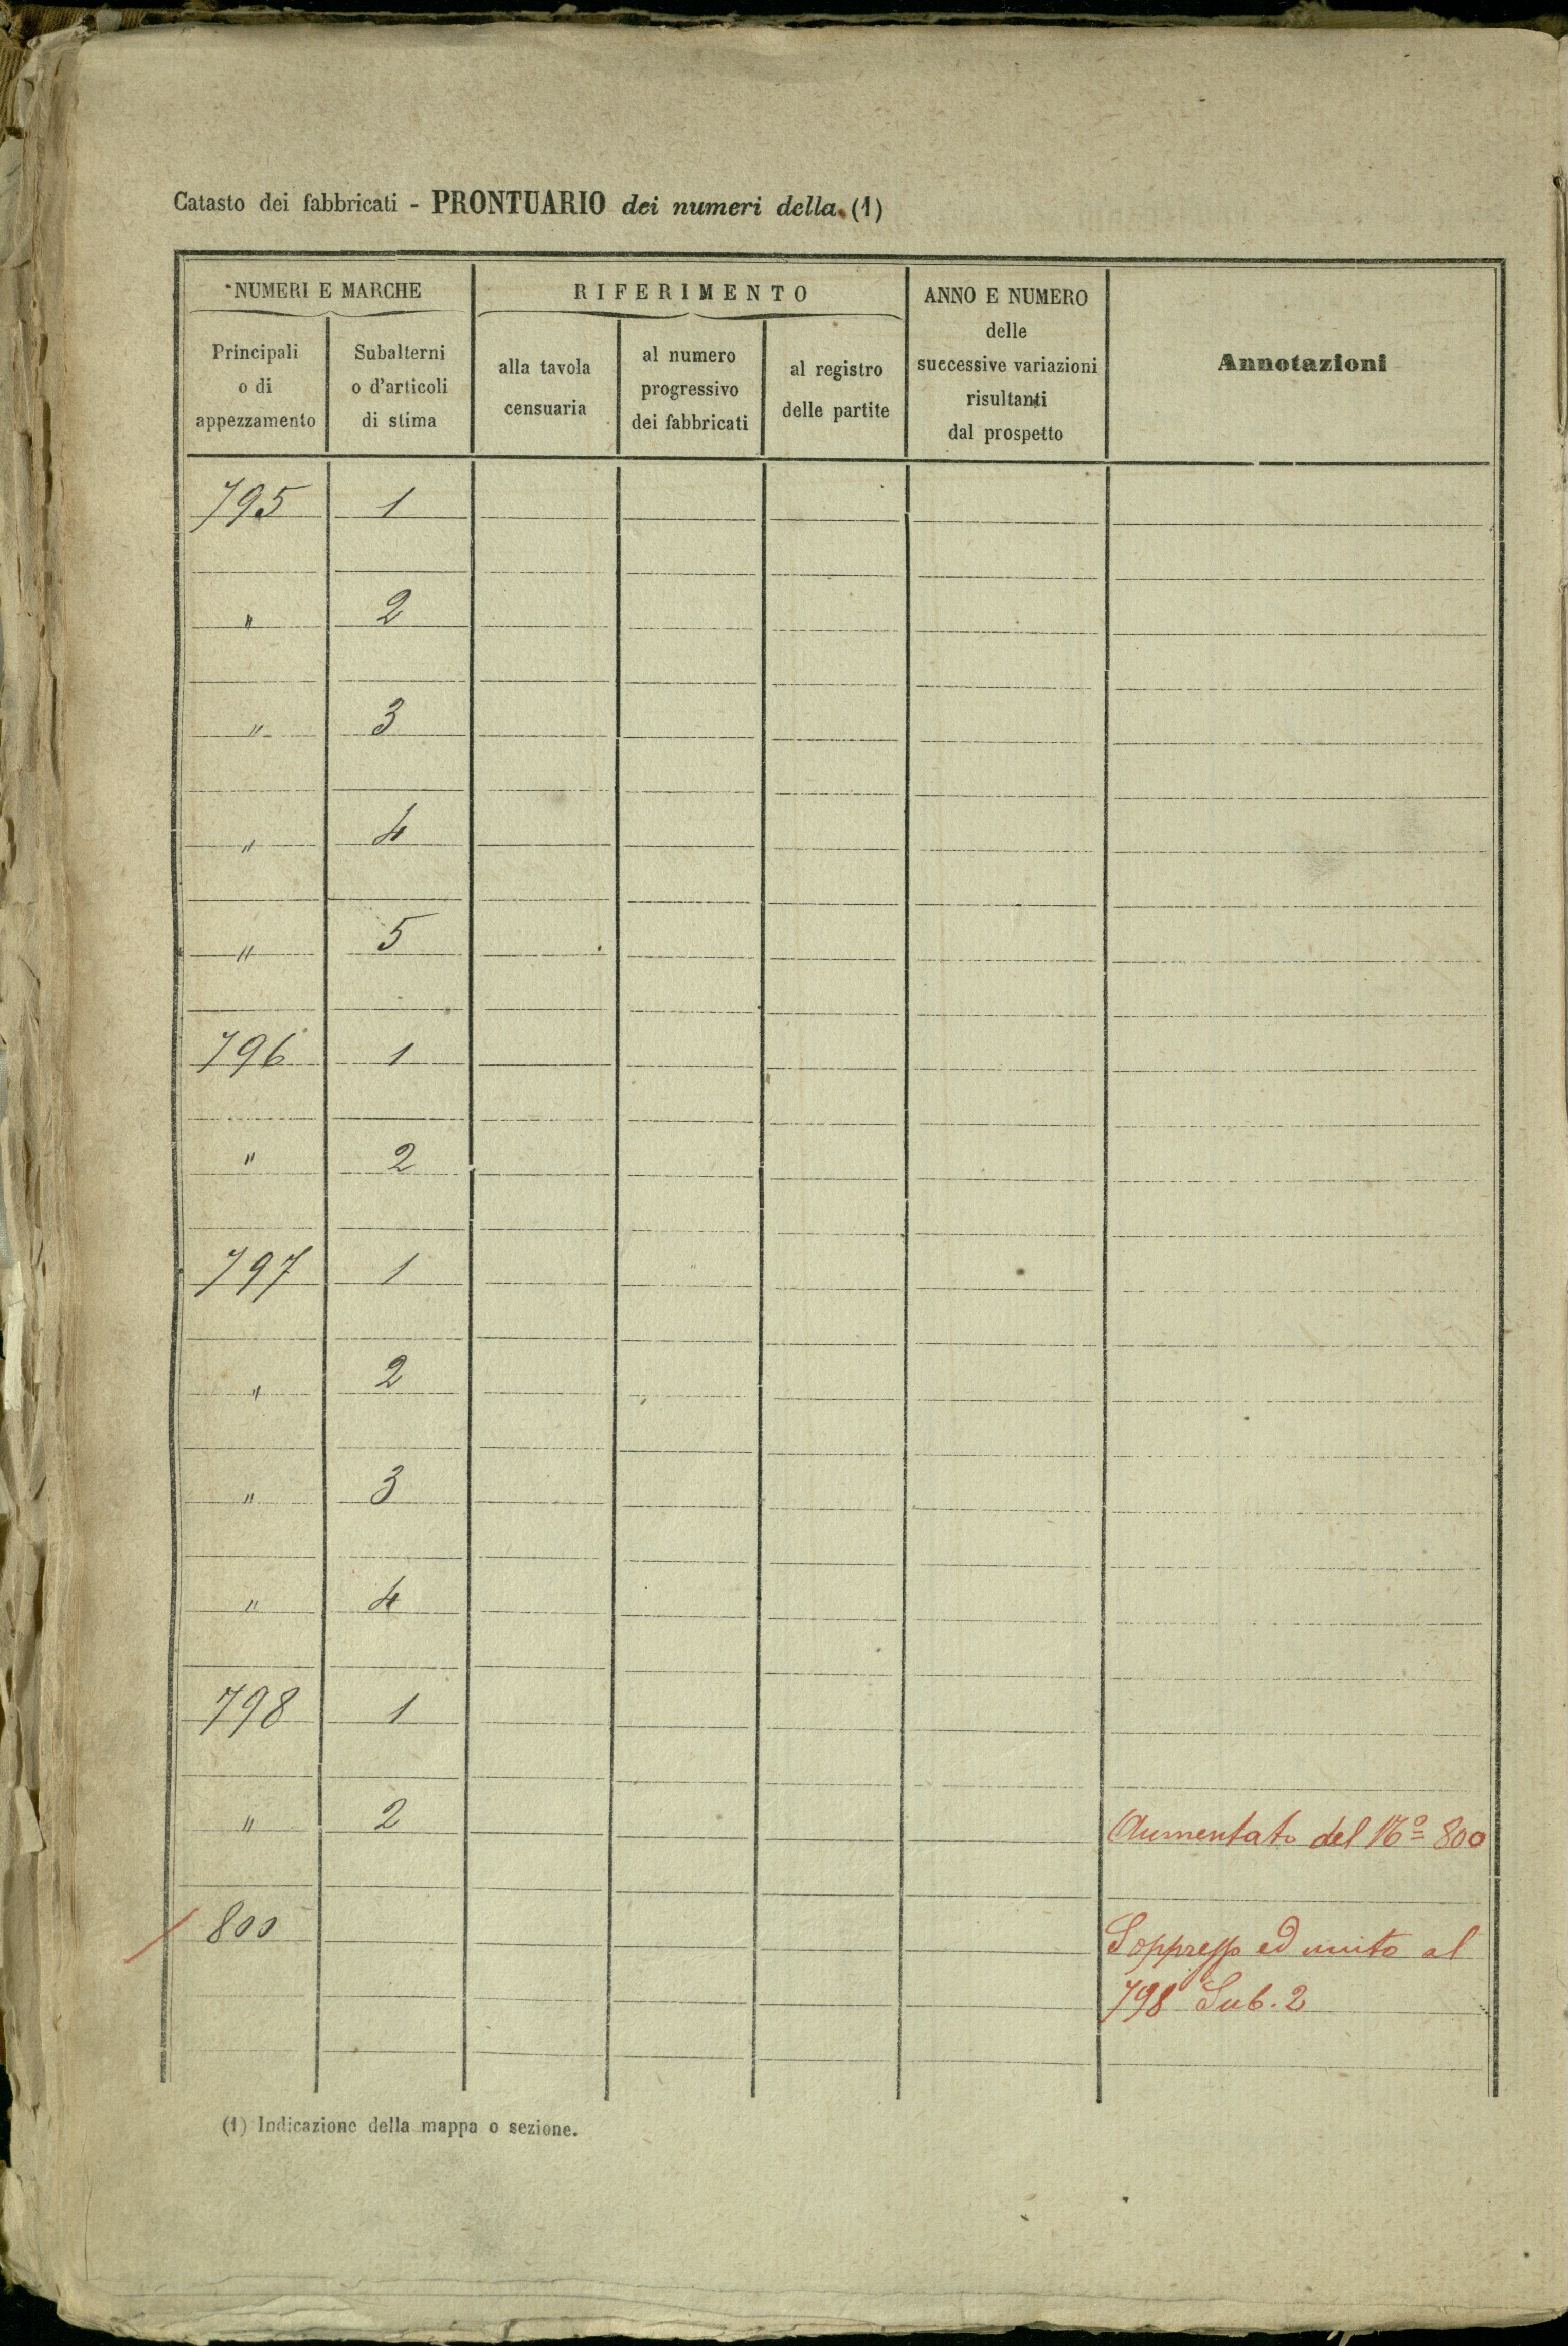 Catasto dei fabbricati - PRONTUARIO dei numeri della (1)
NUMERI E MARCHE
RIFERIMENTO
ANNO E NUMERO
delle
successive variazioni
risultanti
dal prospetto
Annotazioni
Principali
o di
appezzamento
Subalterni
o d'articoli
di stima
alla tavola
censuaria
al numero
progressivo
dei fabbricati
al registro
delle partite
795 1
" 2
" 3
" 4
" 5
796 1
" 2
797 1
" 2
" 3
" 4
798 1
" 2 Aumentato del Nº 800
800 Soppresso ed unito al
798 Sub. 2
(1) Indicazione della mappa o sezione.